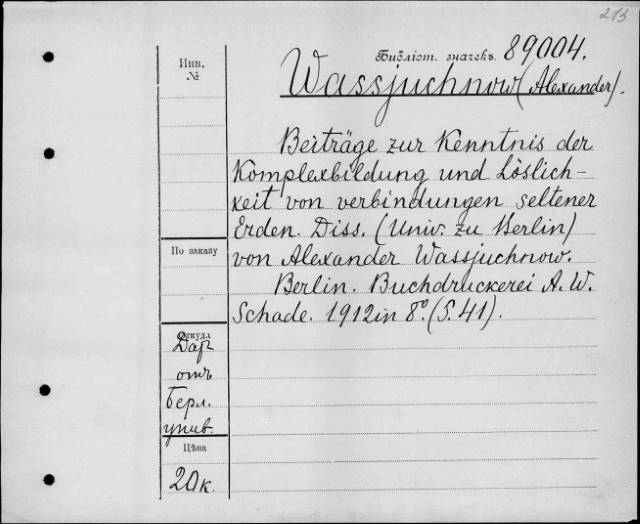 213
Библіот. значекъ. 89004.
Инв.
№
Wassjuchnow (Alexander).
Beiträge zur Kenntnis der
Komplexbildung und Löslich-
keit von verbindungen seltener
Erden. Diss. (Univ. zu Berlin)
По заказу
von Alexander Wassjuchnow.
Berlin. Buchdruckerei A. W.
Schade. 1912 in 8°. (S. 41).
Откуда
Дар
отъ
Берл.
унив.
Цѣна
20 к.